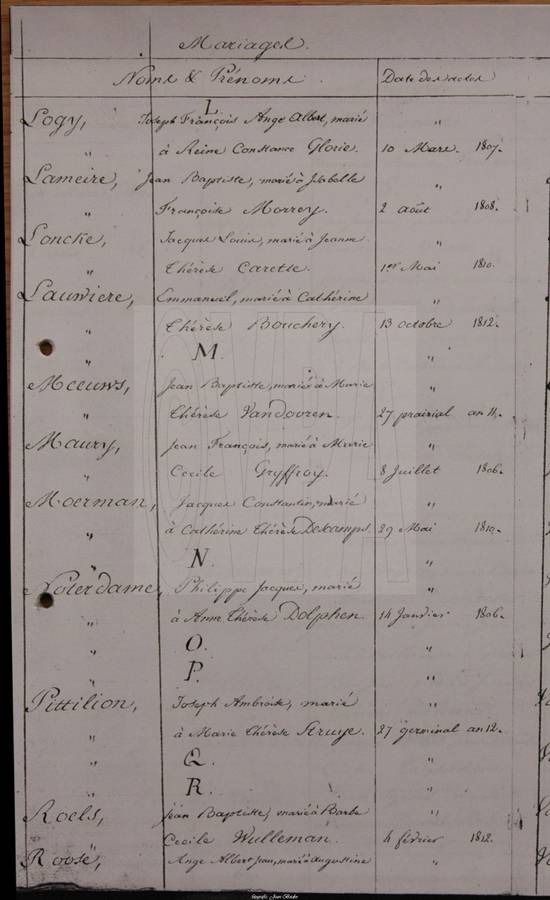 Mariages.
Noms & Prénoms. Date des actes
L
Logy, Joseph François Ange Albert, marié "
" à Reine Constance Glorie. 10 Mars. 1807.
Lameire, Jean Baptiste, marié à Isabelle "
" Françoise Morrey. 2 août 1808.
Loncke, Jacques Louis, marié à Jeanne "
" Thérèse Carette. 1er Mai 1810.
Lauwiere, Emmanuel, marié à Cathérine "
" Thérèse Bouchery. 13 octobre 1812.
" M. "
Meeuws, Jean Baptiste, marié à Marie "
" Thérèse Vandooren. 27 prairial an 11.
Maury, Jean François, marié à Marie "
" Cecile Gryffroy. 8 Juillet 1806.
Moerman, Jacques Constantin, marié "
" à Cathérine Thérèse Descamps. 29 Mai 1810.
" N. "
Noterdame, Philippe Jacques, marié "
" à Anne Thérèse Dolphen. 14 Janvier 1806.
" O. "
" P. "
Pittilion, Joseph Ambroise, marié "
" à Marie Thérèse Struye. 27 germinal an 12.
" Q. "
" R. "
Roels, Jean Baptiste, marié à Barbe "
Cecile Wulleman. 4 février 1812.
Roose, Ange Albert Jean, marié à Augustine "